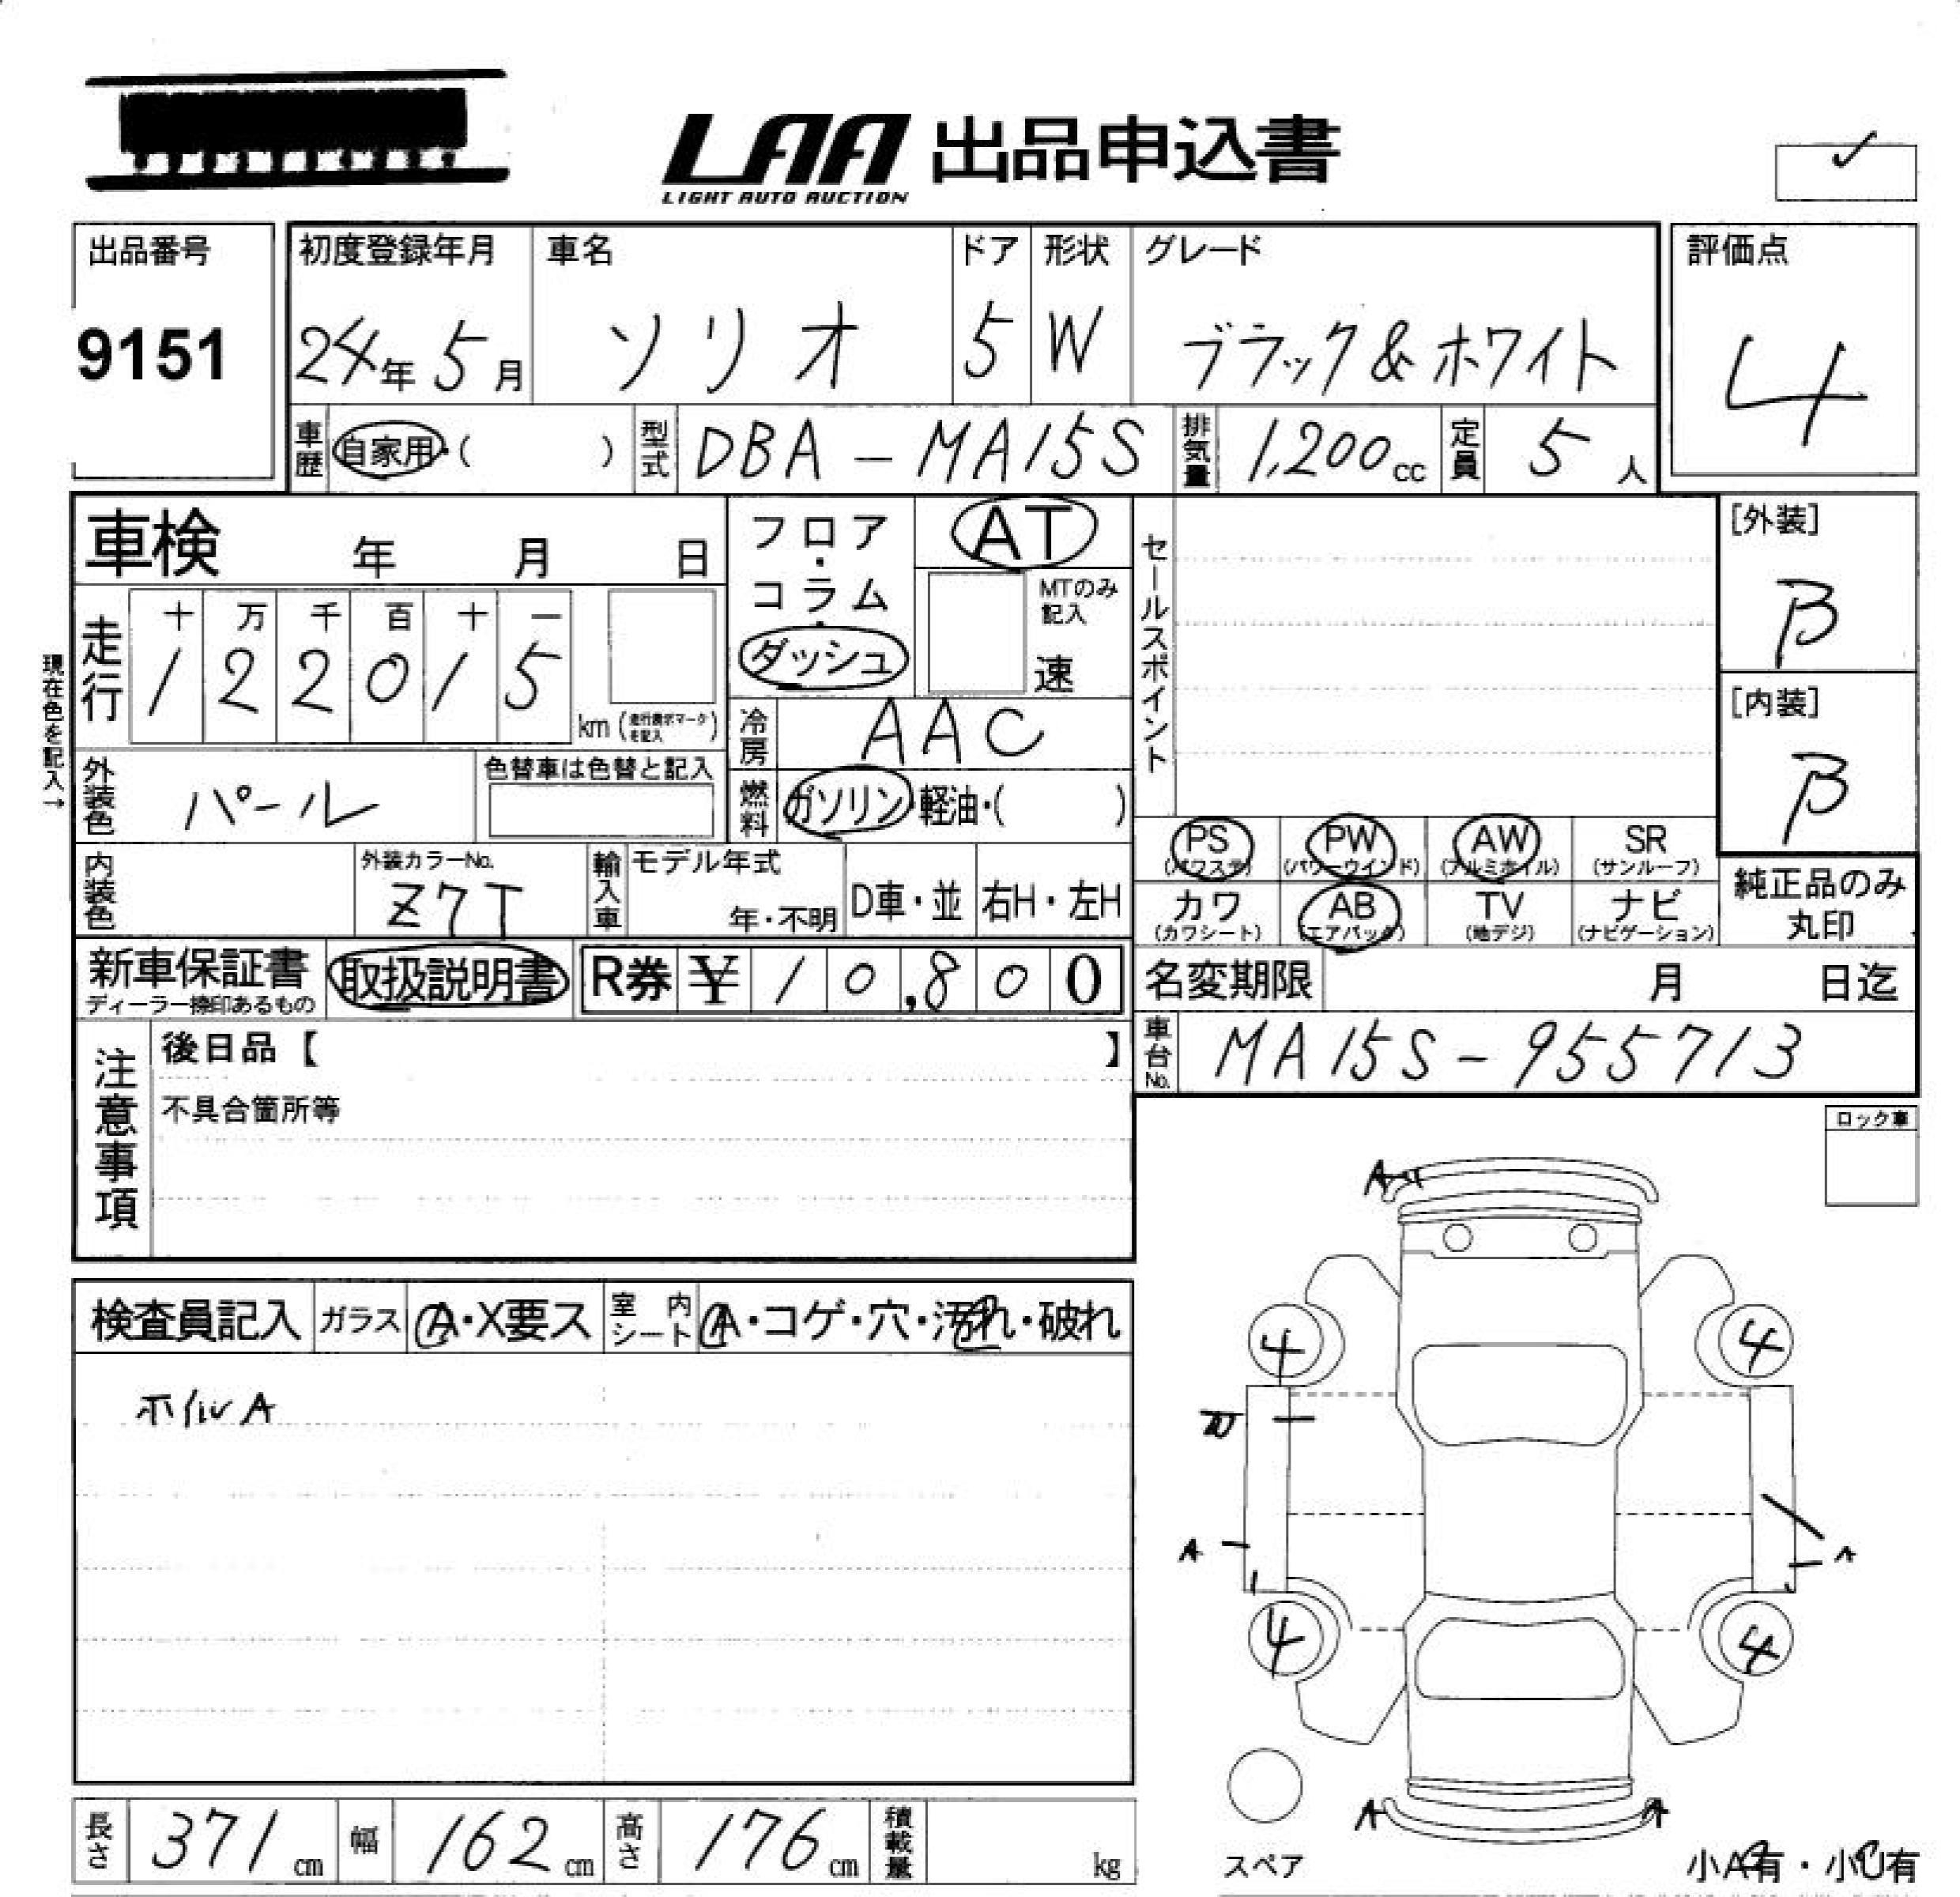 LAA 出品申込書
LIGHT AUTO AUCTION
出品番号
9151
初度登録年月 車名 ドア 形状 グレード
24年 5月 ソリオ 5 W ブラック&ホワイト
評価点
4
車歴 自家用・( ) 型式 DBA-MA15S 排気量 1,200cc 定員 5人
車検 年 月 日
フロア・コラム・ダッシュ
AT
MTのみ記入
速
セールスポイント
[外装]
β
[内装]
β
現在色を記入→
走行 十 万 千 百 十 一
1 2 2 0 1 5 km
冷房 AAC
外装色 パール 色替車は色替と記入
燃料 ガソリン・軽油・( )
PS PW AW SR
(パワステ) (パワーウインド) (アルミホイル) (サンルーフ)
カワ AB TV ナビ
(カワシート) (エアバック) (地デジ) (ナビゲーション)
純正品のみ
丸印
内装色 外装カラーNo. Z7T 輸入車 モデル年式 年・不明 D車・並 右H・左H
新車保証書 取扱説明書 R券 ¥ 1 0,8 0 0
ディーラー捺印あるもの
名変期限 月 日迄
車台No. MA15S-955713
注意事項
後日品【 】
不具合箇所等
ロック車
検査員記入 ガラス A・X要ス 室内シート A・コゲ・穴・汚れ・破れ
ホイルA
A
4 4
A A
4 4
A A
スペア
小A有・小U有
長さ 371cm 幅 162cm 高さ 176cm 積載量 kg